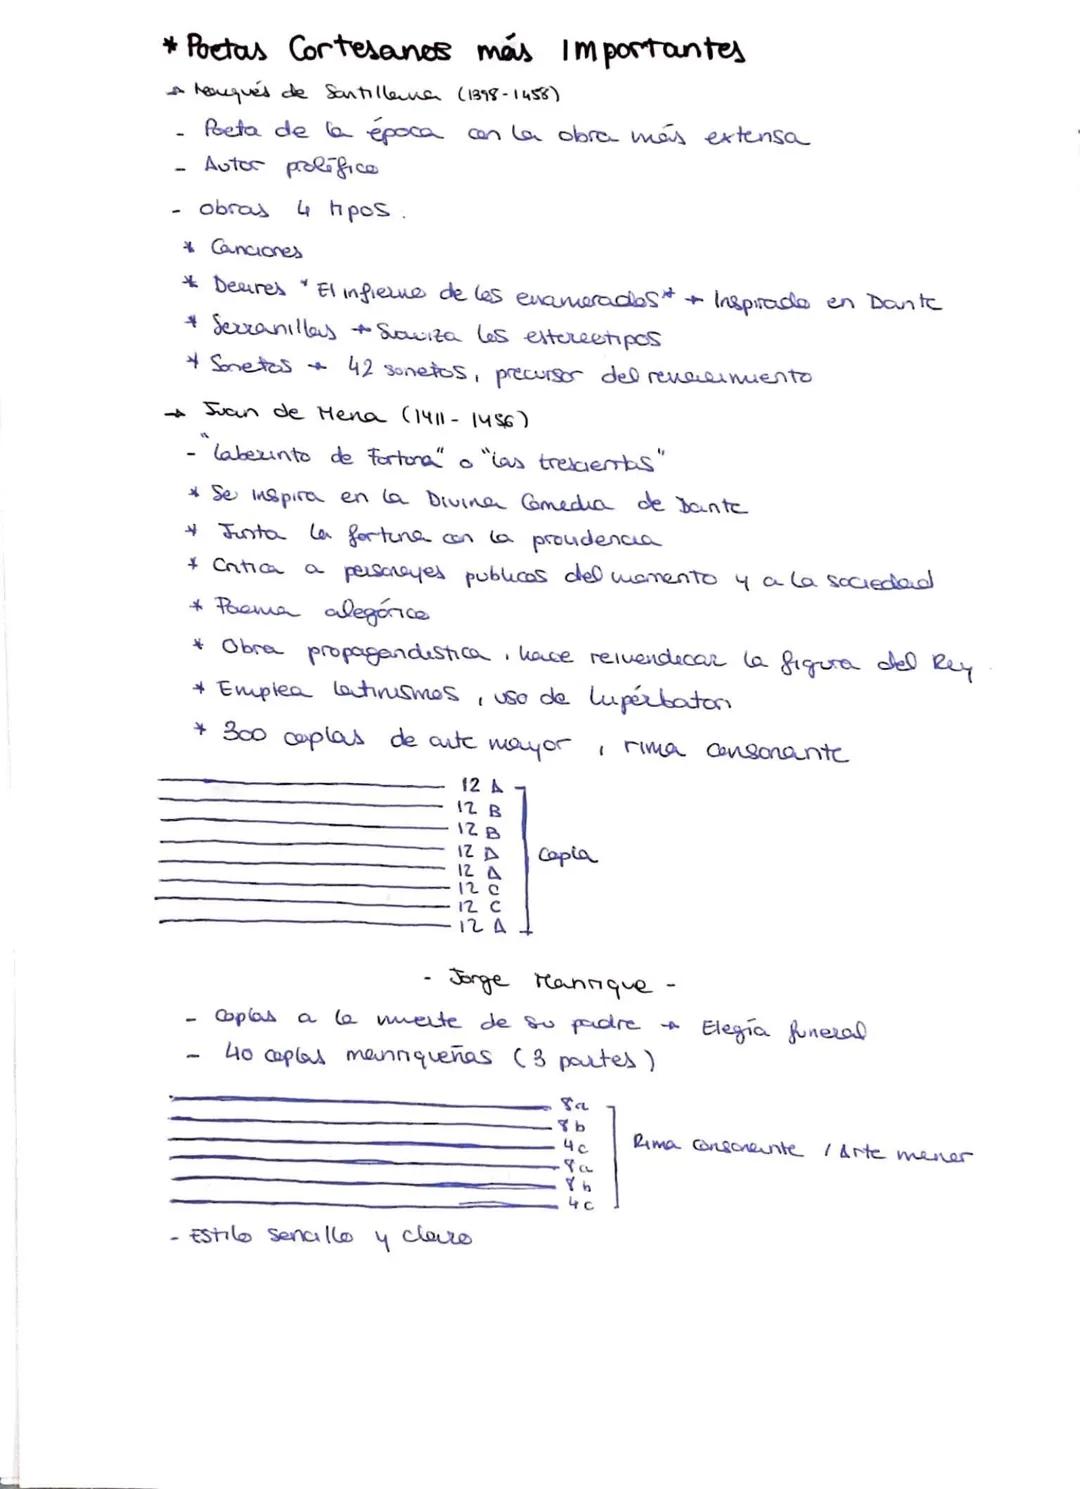 * Poetas Cortesanos más Importantes
→ Marqués de Santillana (1398-1458)
- Poeta de la época con la obra más extensa
- Autor prolífico
- obras 4 tipos.
* Canciones
* Decires "El infierno de los enamorados" → Inspirado en Dante
* Serranillas → Suaviza los estereotipos
* Sonetos → 42 sonetos, precursor del renacimiento
→ Juan de Mena (1411-1456)
- "Laberinto de Fortuna" o "las trescientas"
* Se inspira en la Divina Comedia de Dante
* Junta la fortuna con la providencia
* Critica a personajes publicos del momento y a la sociedad
* Poema alegórico
* Obra propagandistica, hace reivendecar la figura del Rey.
* Emplea latinismos, uso de hipérbaton
* 300 coplas de arte mayor, rima consonante
12 A
12 B
12 B
12 A
12 A
12 C
12 C
12 A
Copla
- Jorge Manrique -
- Coplas a la muerte de su padre → Elegía funeral
- 40 coplas manriqueñas (3 partes)
8a
8b
4c
8a
8b
4c
Rima consonante / Arte menor
- Estilo sencillo y claro